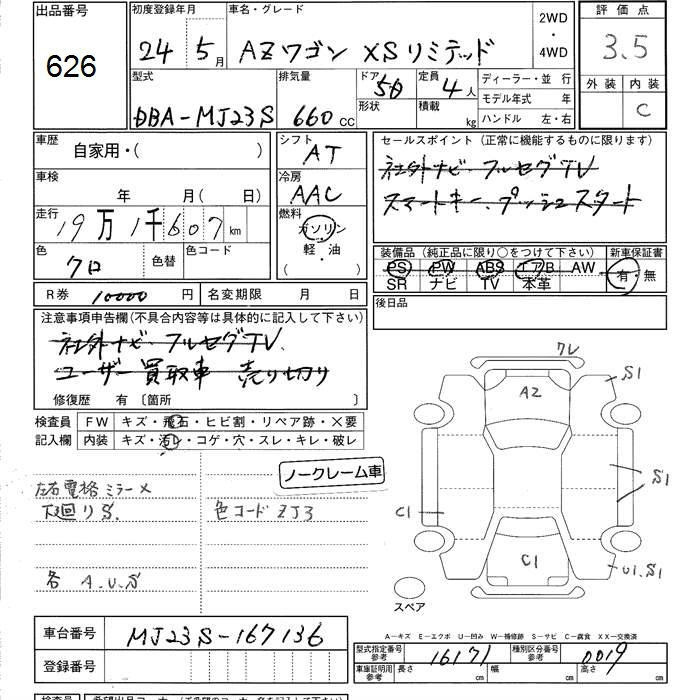 出品番号
626
初度登録年月
24年5月
車名・グレード
AZワゴン XSリミテッド
2WD
・
4WD
評価点
3.5
外装 内装
C
型式
DBA-MJ23S
排気量
660cc
ドア
5
形状
定員
4人
積載
kg
ディーラー・並行
モデル年式 年
ハンドル 左・右
車歴
自家用・( )
車検
年 月( 日)
走行
19万1千607km
色
クロ
色替
色コード
R券 10000円
名変期限 月 日
シフト
AT
冷房
AAC
燃料
ガソリン
軽・油
( ・ )
セールスポイント(正常に機能するものに限ります)
社外ナビ・フルセグTV
スマートキー、プッシュスタート
装備品(純正品に限り○をつけて下さい)
新車保証書
PS PW ABS エアB AW
SR ナビ TV 本革
有・無
後日品
注意事項申告欄(不具合内容等は具体的に記入して下さい)
社外ナビ・フルセグTV、
ユーザー買取車 売り切り
修復歴 有〔箇所 〕
検査員
記入欄
FW キズ・飛石・ヒビ割・リペア跡・×要
内装 キズ・汚レ・コゲ・穴・スレ・キレ・破レ
ノークレーム車
左右電格ミラー×
下廻りS.
色コードZJ3
各 A.U.S
フレ
S1
AZ
S1
C1
C1
U1.S1
スペア
車台番号
MJ23S-167136
登録番号
A-キズ E-エクボ U-凹み W-補修跡 S-サビ C-腐食 XX-交換済
型式指定番号
参考
16171
種別区分番号
参考
0019
車庫証明用
参考
長さ cm 幅 cm 高さ cm
検査員